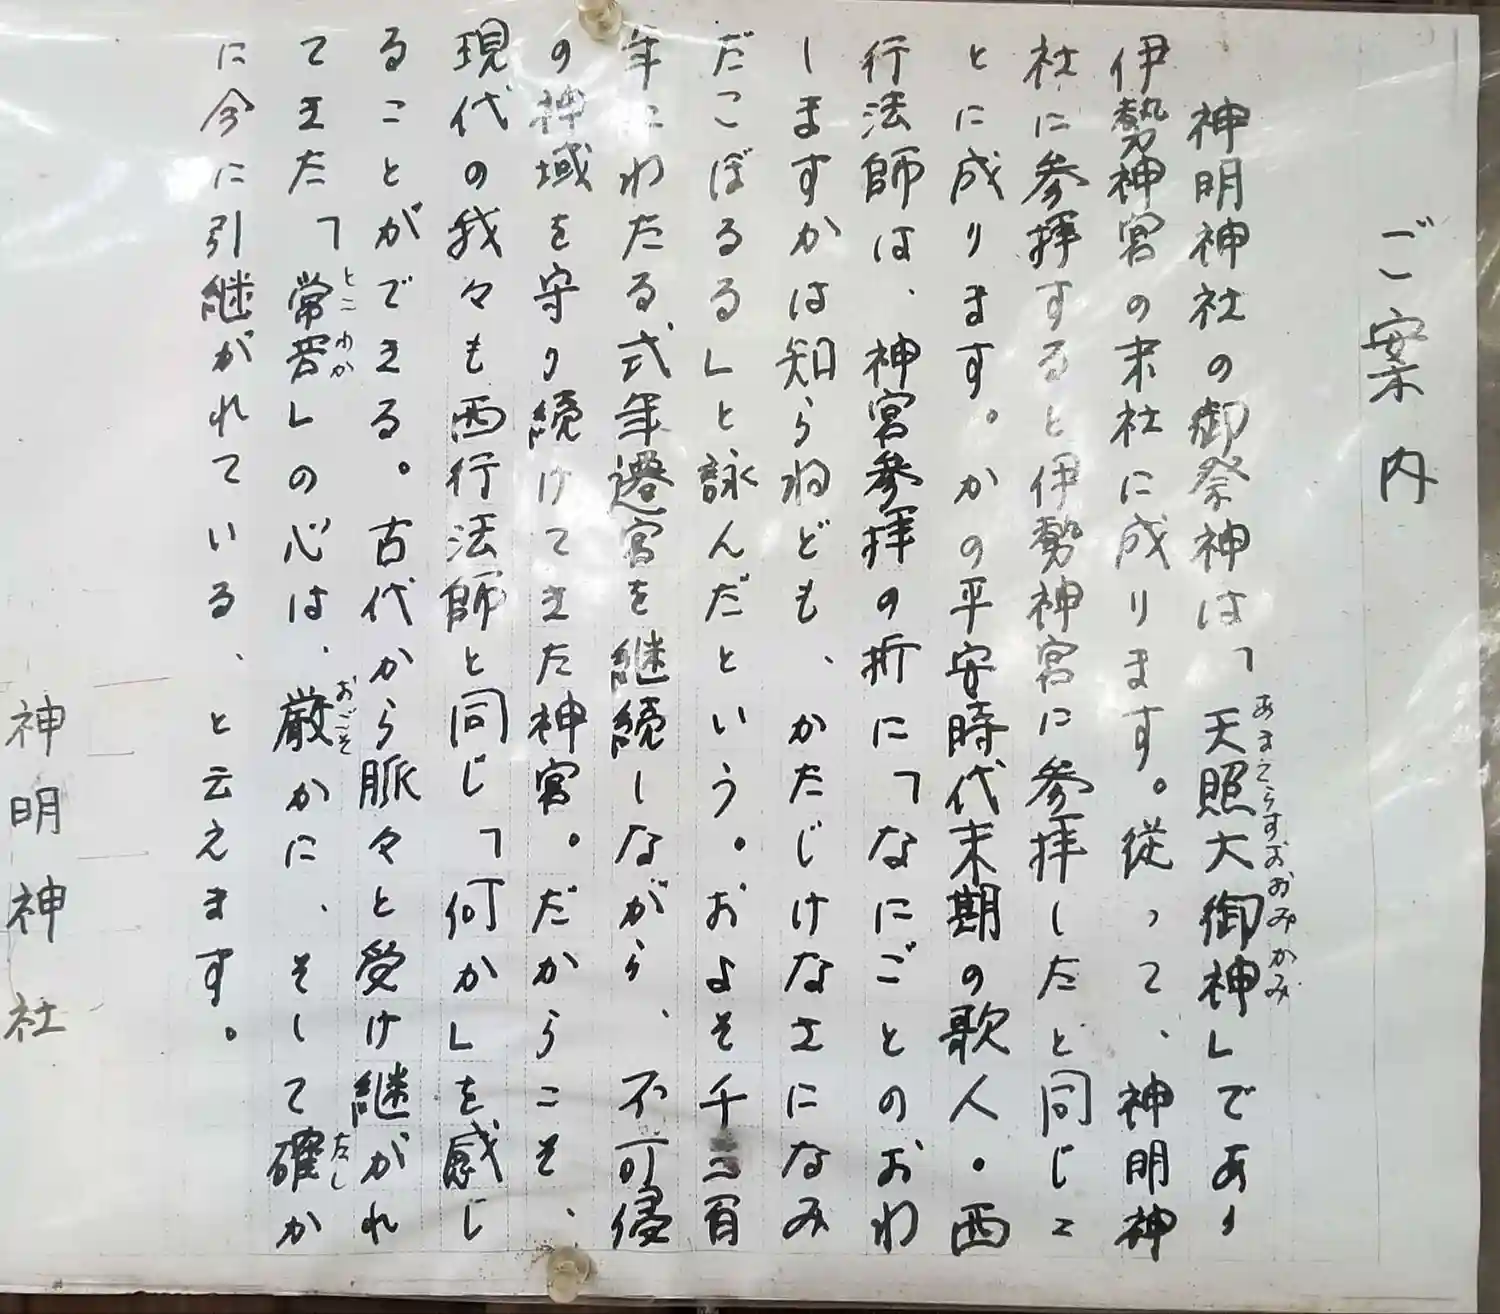 ご案内
神明神社の御祭神は「天照大御神」であり
あまてらすおおみかみ
伊勢神宮の末社に成ります。従って、神明神
社に参拝すると伊勢神宮に参拝したと同じこ
とに成ります。かの平安時代末期の歌人・西
行法師は、神宮参拝の折に「なにごとのおわ
しますかは知らねども、かたじけなさになみ
だこぼるる」と詠んだという。およそ千二百
年にわたる式年遷宮を継続しながら、不可侵
の神域を守り続けてきた神宮。だからこそ、
現代の我々も西行法師と同じ「何か」を感じ
ることができる。古代から脈々と受け継がれ
てきた「常若」の心は、厳かに、そして確か
とこわか おごそ たし
に今に引継がれている、と云えます。
神明神社